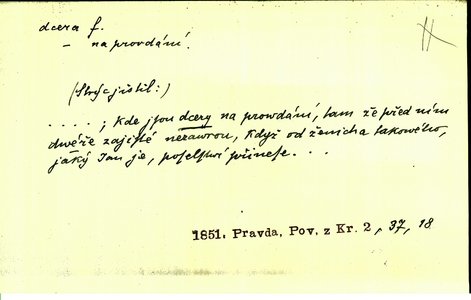 dcera f.
– na provdání.
(Strýc jistil:)
. . . . ; kde jsou dcery na prowdání, tam že před ním
dwéře zajisté nezawrou, když od ženicha takowého,
jaký Jan je, poselství přinese. . .
1851. Pravda, Pov. z Kr. 2, 37, 18